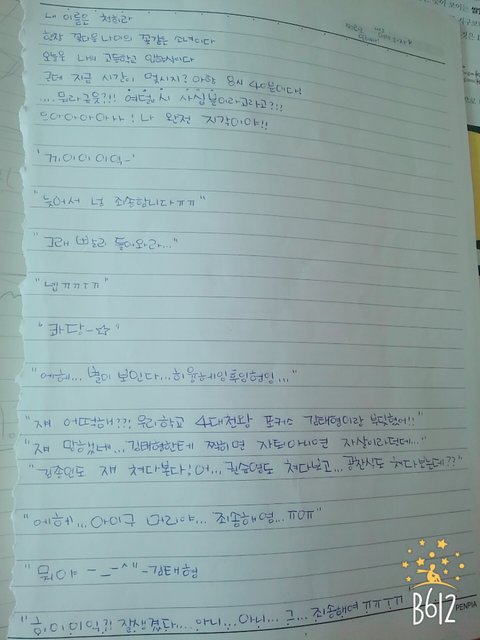 내 이름은 천하라
한창 꽃다운 나이의 꽃같은 소녀이다
오늘은 나의 고등학교 입학식이다
근데 지금 시간이 몇시지? 아항 8시 40분이다!
....뭐라구욧?!! 여덟 시 사십 분이라고라고?!!
으아아아아아! 나 완전 지각이야!!
"늦어서 넘 죄송합니다ㅠㅠ"
"그래 빨리 들어와라..."
"넵ㅠㅠㅠㅠ"
"콰당-☆"
"에헤... 별이 보인다...
"쟤 어떡해??! 우리학교 4대천왕 포커스 김태형이랑 부딪혔어!!"
"쟤 망했네...김태형한테 찍히면 자퇴아니면 자살이라던데..."
"김종인도 쟤 쳐다본다!어... 권순영도 쳐다보고... 공찬식도 쳐다보는데??"
"에헤... 아이구 머리야... 죄송해영...ㅠㅠ"
"뭐야 ㅡ_ㅡ^"-김태형
"히이이익?! 잘생겼다... 아니...아니... 그... 죄송해여ㅠㅠㅜㅠ"
B612
PENPIA